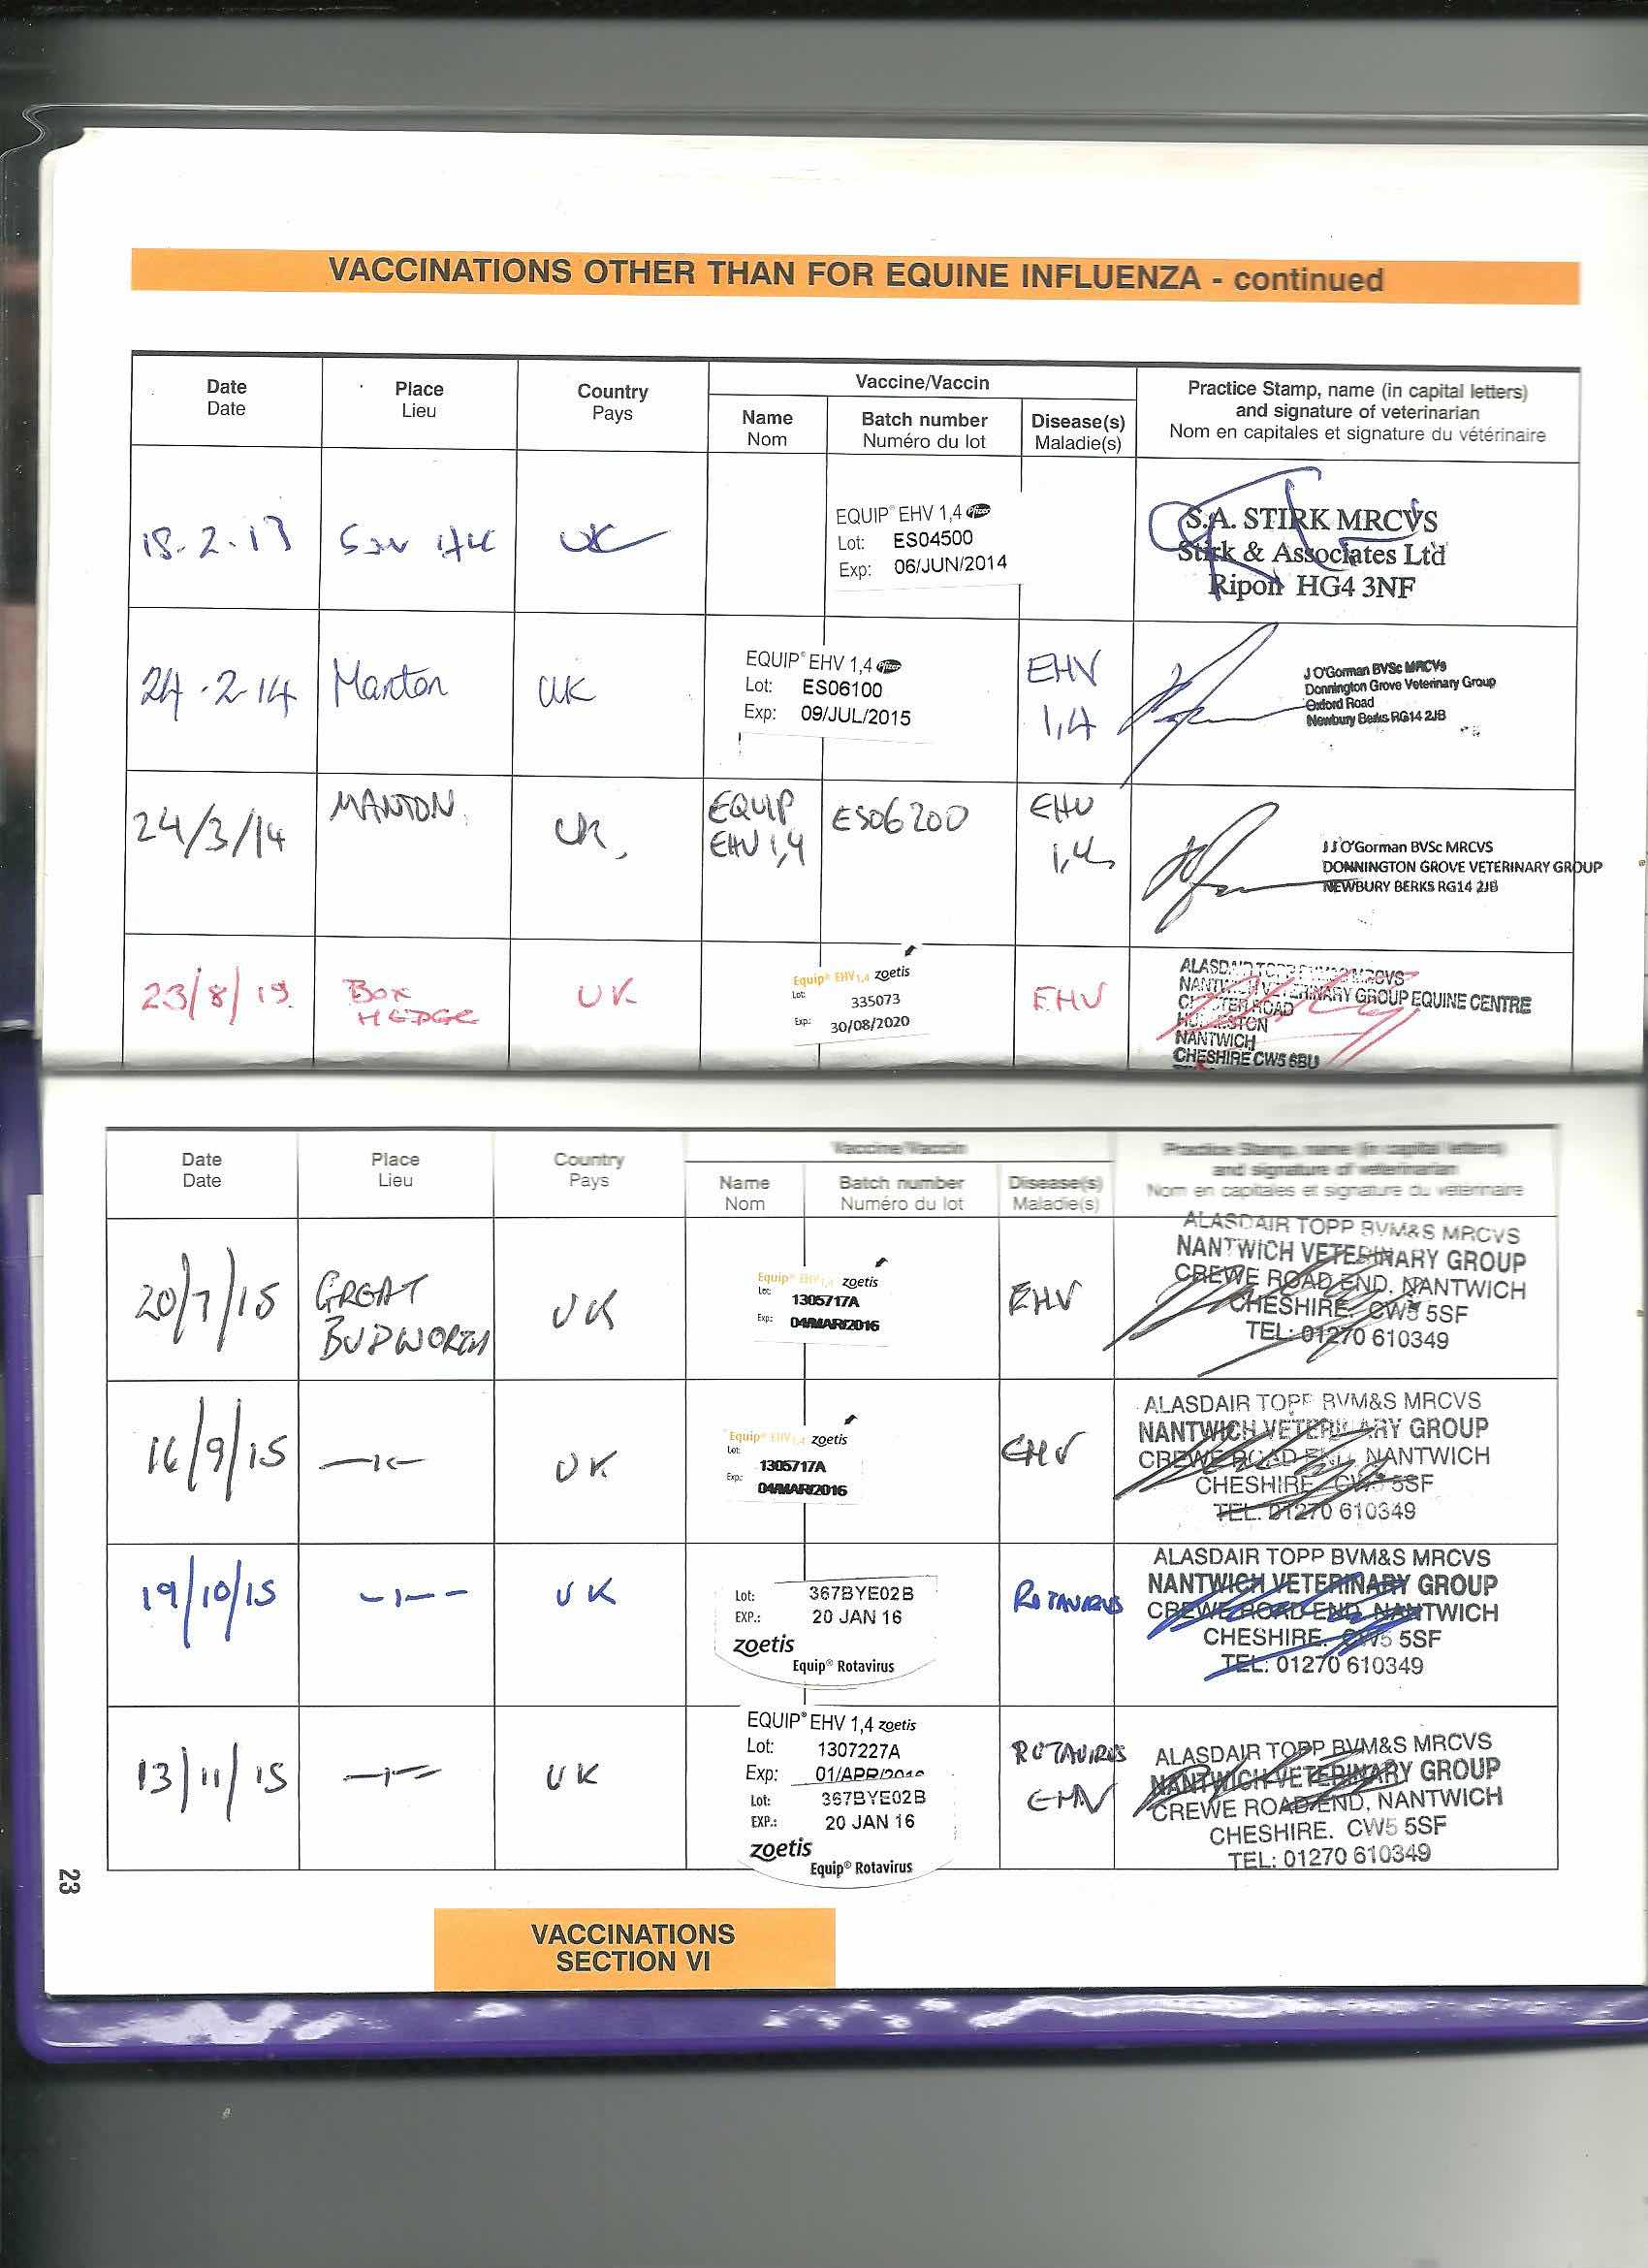 VACCINATIONS OTHER THAN FOR EQUINE INFLUENZA - continued
Date
Date
Place
Lieu
Country
Pays
Vaccine/Vaccin
Name
Nom
Batch number
Numéro du lot
Disease(s)
Maladie(s)
Practice Stamp, name (in capital letters)
and signature of veterinarian
Nom en capitales et signature du vétérinaire
18.2.13
UK
EQUIP® EHV 1,4 Pfizer
Lot: ES04500
Exp: 06/JUN/2014
S.A. STIRK MRCVS
Stirk & Associates Ltd
Ripon HG4 3NF
24.2.14
Manton
UK
EQUIP® EHV 1,4 Pfizer
Lot: ES06100
Exp: 09/JUL/2015
EHV
1,4
J O'Gorman BVSc MRCVs
Donnington Grove Veterinary Group
Oxford Road
Newbury Berks RG14 2JB
24/3/14
MANTON.
UK,
EQUIP
EHV 1,4
ES06200
EHV
1,4
J J O'Gorman BVSc MRCVS
DONNINGTON GROVE VETERINARY GROUP
NEWBURY BERKS RG14 2JB
23/8/19.
BOX
HEDGE
UK
Equip® EHV 1,4 zoetis
Lot: 335073
Exp: 30/08/2020
EHV
ALASDAIR TOPP BVM&S MRCVS
NANTWICH VETERINARY GROUP EQUINE CENTRE
CHESTER ROAD
HURLESTON
NANTWICH
CHESHIRE CW5 6BU
Date
Date
Place
Lieu
Country
Pays
Vaccine/Vaccin
Name
Nom
Batch number
Numéro du lot
Disease(s)
Maladie(s)
Practice Stamp, name (in capital letters)
and signature of veterinarian
Nom en capitales et signature du vétérinaire
20/7/15
GREAT
BUDWORTH
UK
Equip® EHV 1,4 zoetis
Lot: 1305717A
Exp: 04/MAR/2016
EHV
ALASDAIR TOPP BVM&S MRCVS
NANTWICH VETERINARY GROUP
CREWE ROAD END, NANTWICH
CHESHIRE. CW5 5SF
TEL: 01270 610349
16/9/15
UK
Equip® EHV 1,4 zoetis
Lot: 1305717A
Exp: 04/MAR/2016
EHV
ALASDAIR TOPP BVM&S MRCVS
NANTWICH VETERINARY GROUP
CREWE ROAD END, NANTWICH
CHESHIRE. CW5 5SF
TEL: 01270 610349
19/10/15
UK
Lot: 367BYE02B
EXP.: 20 JAN 16
zoetis
Equip® Rotavirus
ROTAVIRUS
ALASDAIR TOPP BVM&S MRCVS
NANTWICH VETERINARY GROUP
CREWE ROAD END, NANTWICH
CHESHIRE. CW5 5SF
TEL: 01270 610349
13/11/15
UK
EQUIP® EHV 1,4 zoetis
Lot: 1307227A
Exp: 01/APR/2016
Lot: 367BYE02B
EXP.: 20 JAN 16
zoetis
Equip® Rotavirus
ROTAVIRUS
EHV
ALASDAIR TOPP BVM&S MRCVS
NANTWICH VETERINARY GROUP
CREWE ROAD END, NANTWICH
CHESHIRE. CW5 5SF
TEL: 01270 610349
23
VACCINATIONS
SECTION VI